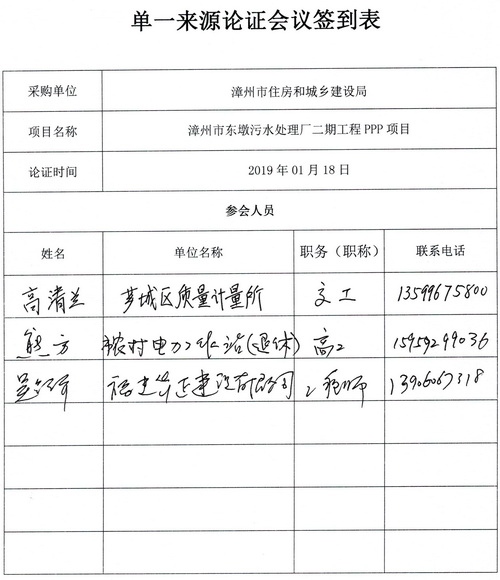 单一来源论证会议签到表
采购单位 漳州市住房和城乡建设局
项目名称 漳州市东墩污水处理厂二期工程 PPP 项目
论证时间 2019 年 01 月 18 日
参会人员
姓名 单位名称 职务（职称） 联系电话
高清兰 芗城区质量计量所 高工 13599675800
熊方 农村电力工作站(退休) 高工 15959299036
福建 建设有限公司 工程师 13906067318